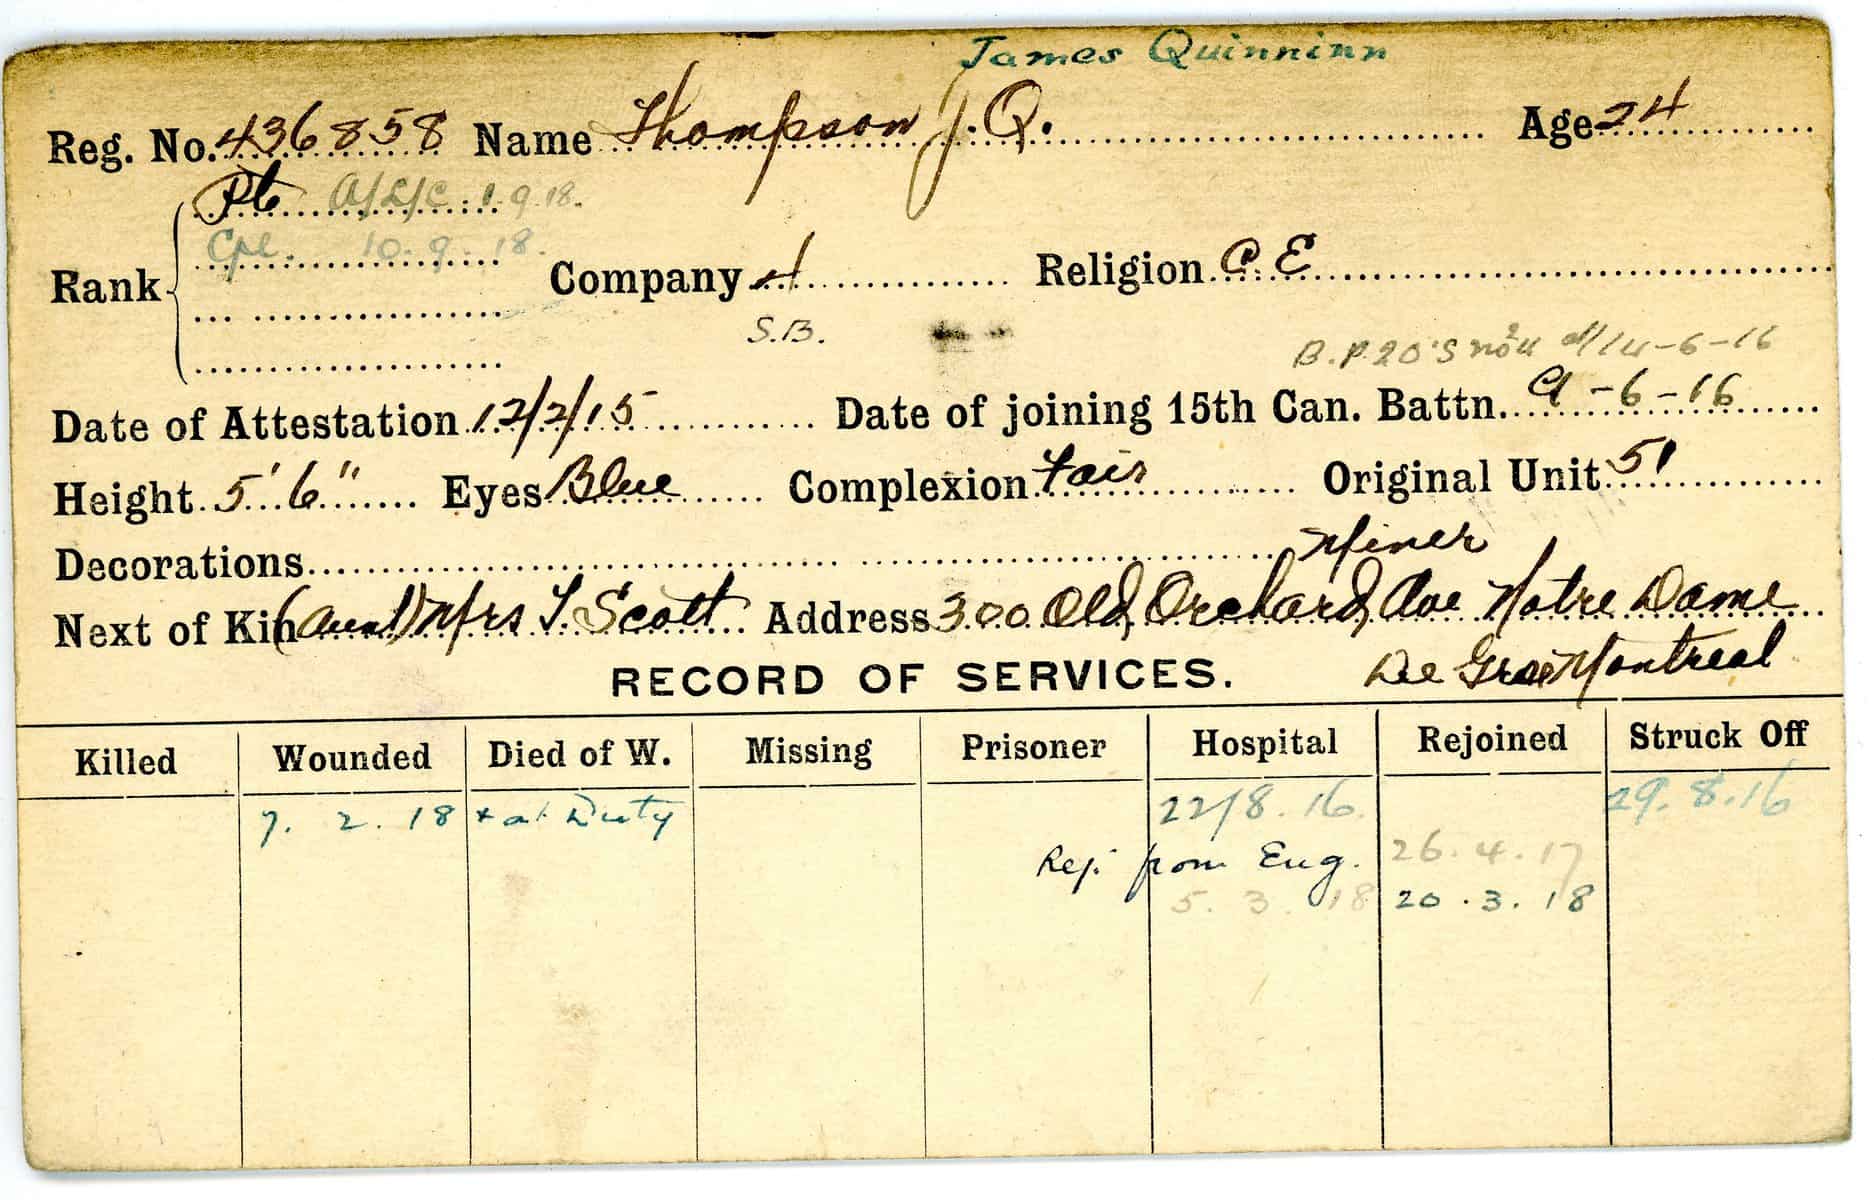 James Quinninn
Reg. No. 436858 Name Thompson J. Q. Age 24
Pte A/L/C. 1.9.18.
Cpl. 10.9.18.
Rank Company 4 Religion C. E
S.B.
B. P. 20's 14-6-16
Date of Attestation 12/2/15 Date of joining 15th Can. Battn. 9-6-16
Height 5' 6" Eyes Blue Complexion Fair Original Unit 51
Decorations Miner
Next of Kin (Aunt) Mrs Scott Address 300 Old Orchard Ave Notre Dame
De Grace Montreal
RECORD OF SERVICES.
Killed Wounded Died of W. Missing Prisoner Hospital Rejoined Struck Off
7. 2. 18 + at Duty 22/8.16. 29.8.16
Rej. from Eng. 26.4.17
5. 3. 18 20.3.18